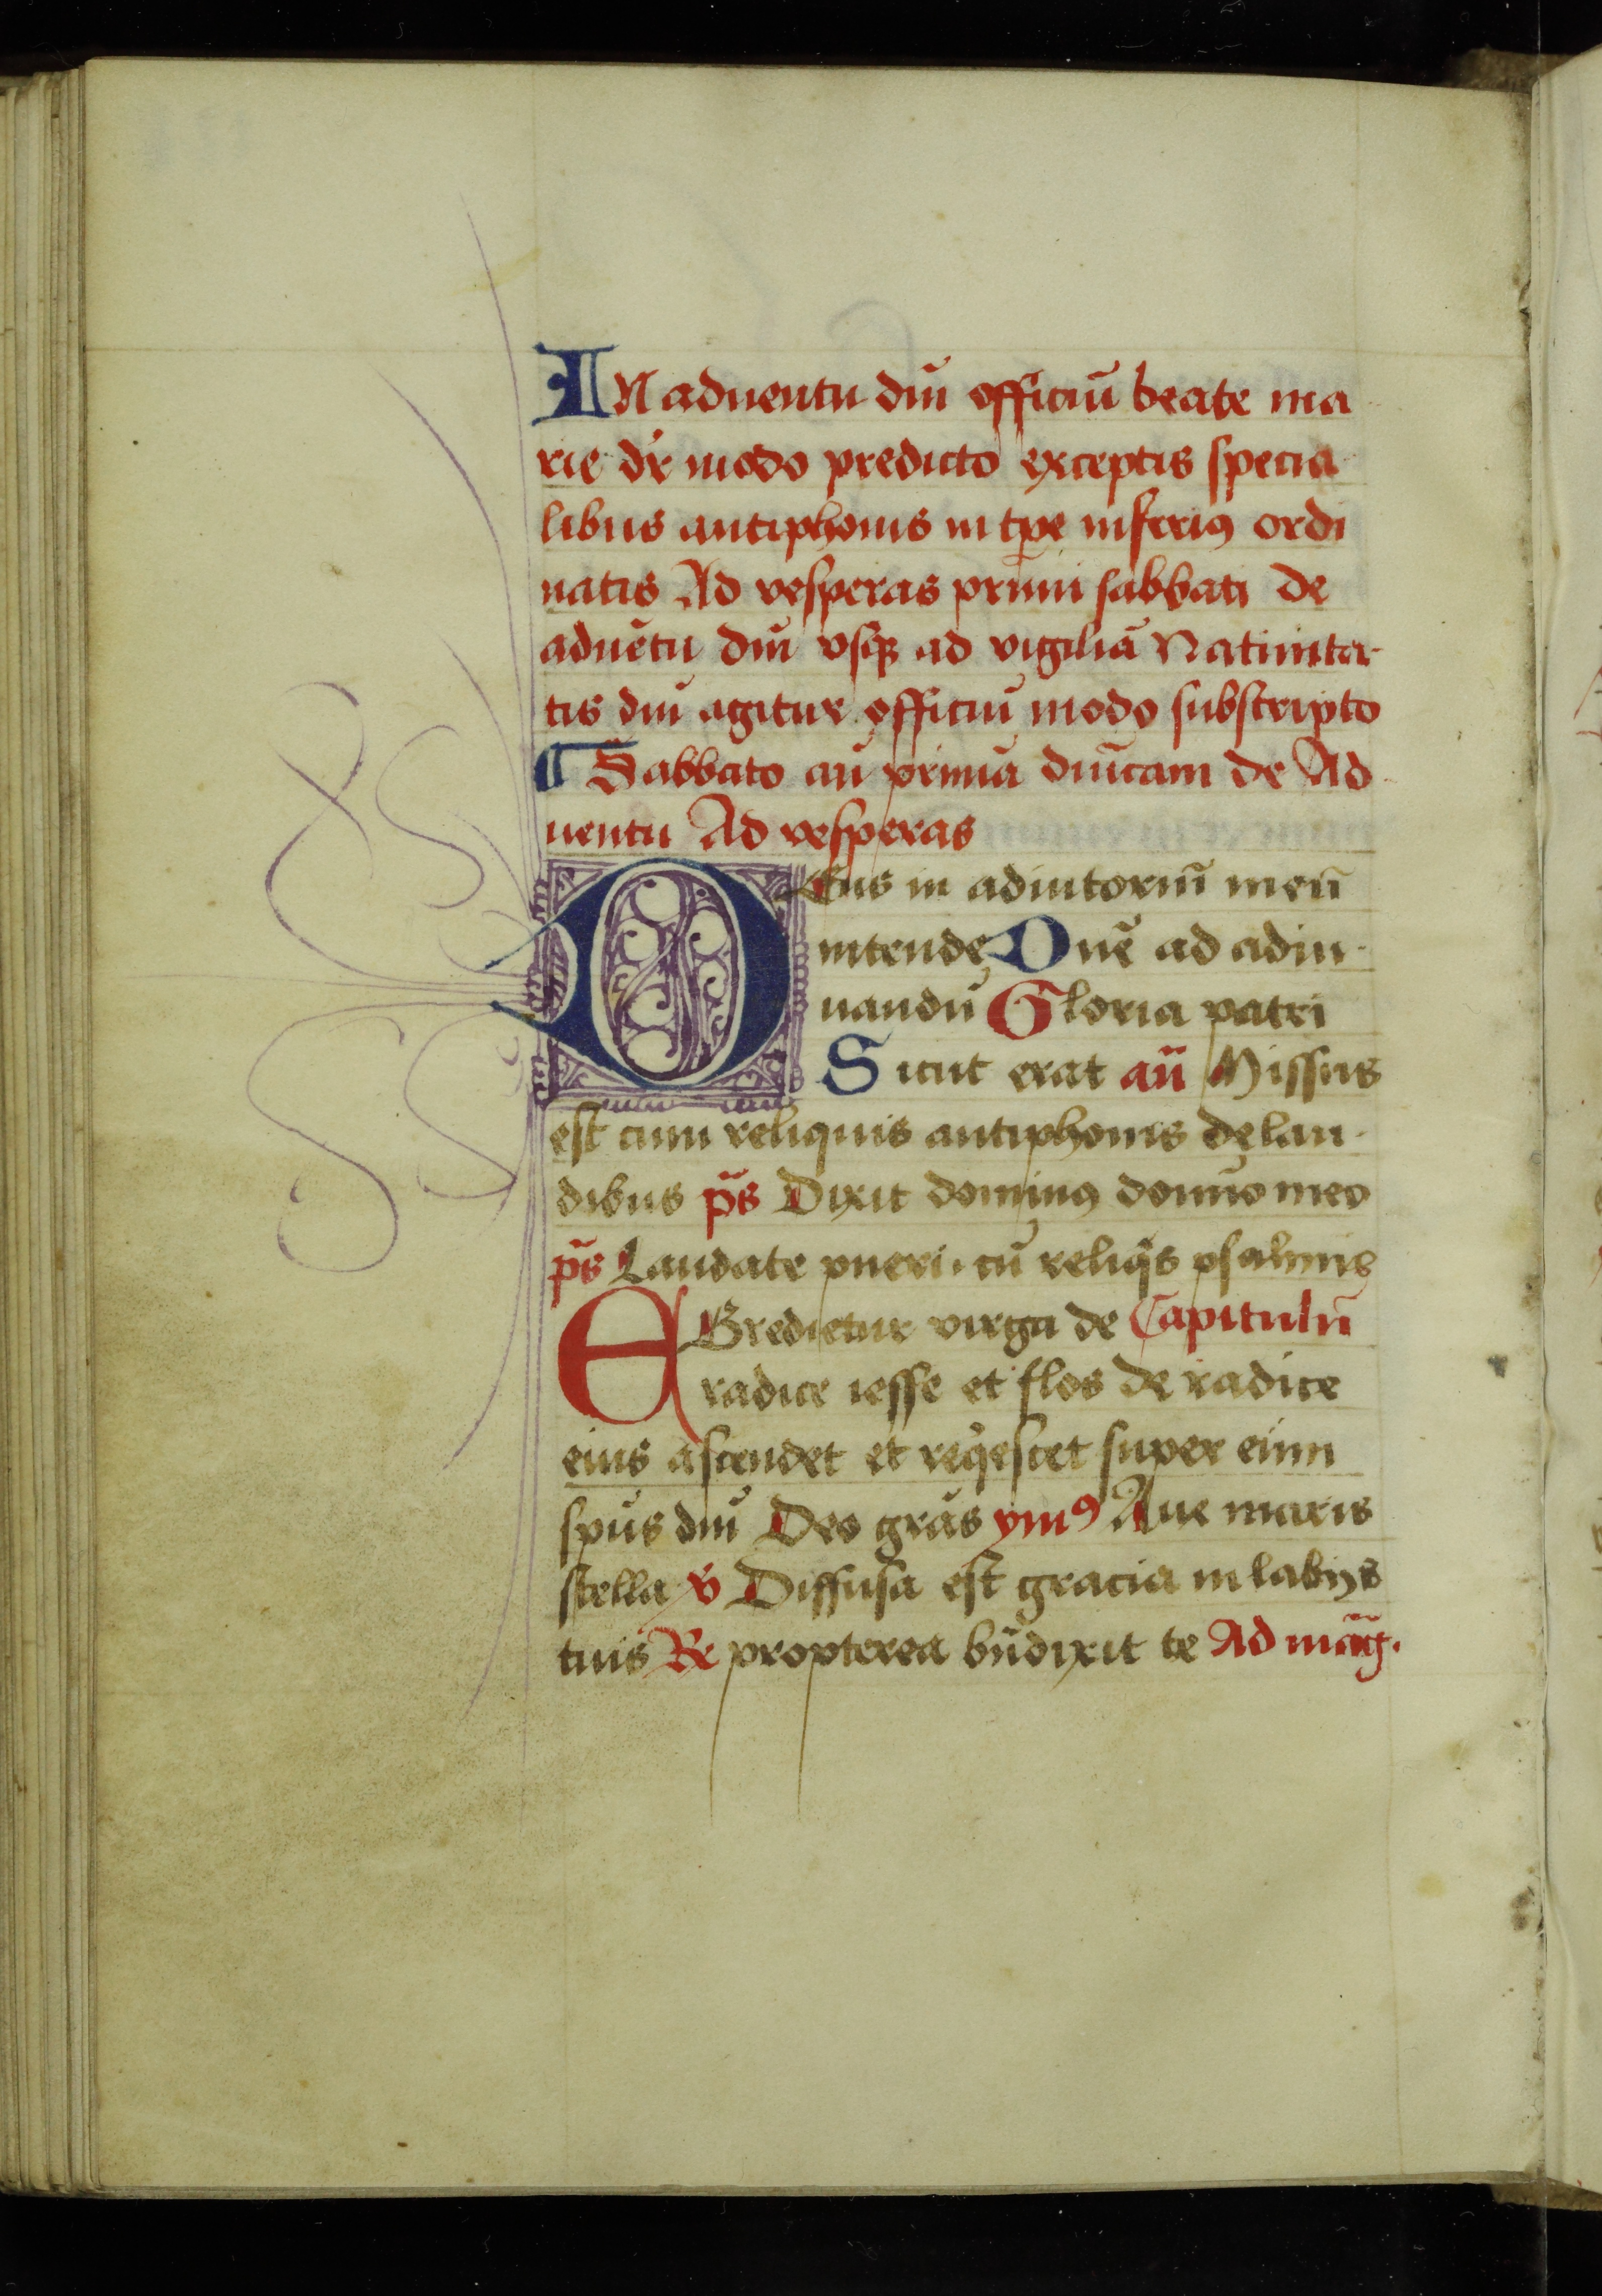 IN aduentu dnī officiū beate ma
rie dr̄ modo predicto exceptis specia
libus antiphonis in tp̄e inferiꝰ ordi
natis Ad vesperas primi sabbati de
aduētu dnī vsqꝫ ad vigiliā Natiuita-
tis dnī agitur officiū modo subscripto
¶ Sabbato an̄ primā dn̄icam de Ad
uentu Ad vesperas
DEus in adiutoriū meū
intende Dn̄e ad adiu-
uandū Gloria patri
Sicut erat an̄ Missus
est cum reliquis antiphonis de lau-
dibus ps̄ Dixit dominꝰ domīo meo
ps̄ Laudate pueri. cū reliqͥs psalmis
EGredietur virga de Capitulū
radice iesse et flos de radice
eius ascendet et reqͥescet super eum
spūs dnī Deo grās ymꝰ Aue maris
stella v̄ Diffusa est gracia in labijs
tuis R̄ propterea bn̄dixit te Ad māg.